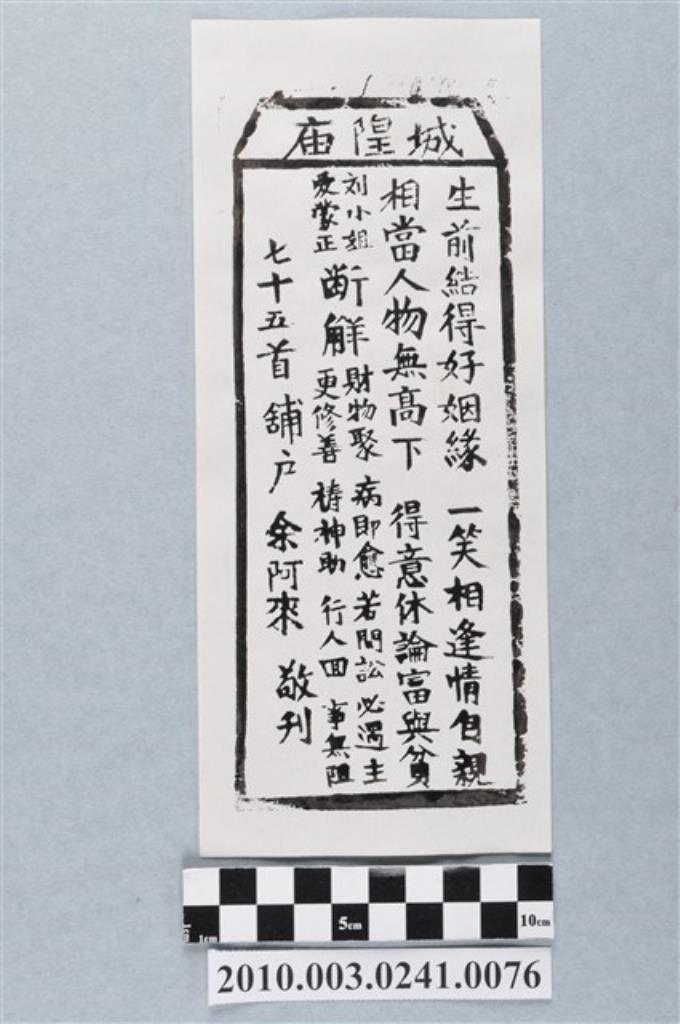 城隍庙
生前結得好姻緣 一笑相逢情自親
相當人物無高下 得意休論富與貧
刘小姐
愛蒙正
断解
財物聚 病即愈 若問訟 必遇主
更修善 禱神助 行人回 事無阻
七十五首 舖户 余阿來 敬刊
1cm 5cm 10cm
2010.003.0241.0076